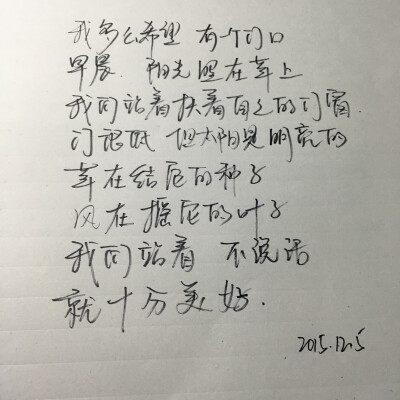 我多么希望 有一个门口
早晨. 阳光照在草上
我们站着 扶着自己的门窗.
门很低 但太阳是明亮的
草在结尼的种子
风在摇尼的叶子
我们站着 不说话
就十分美好.
2015.12.5